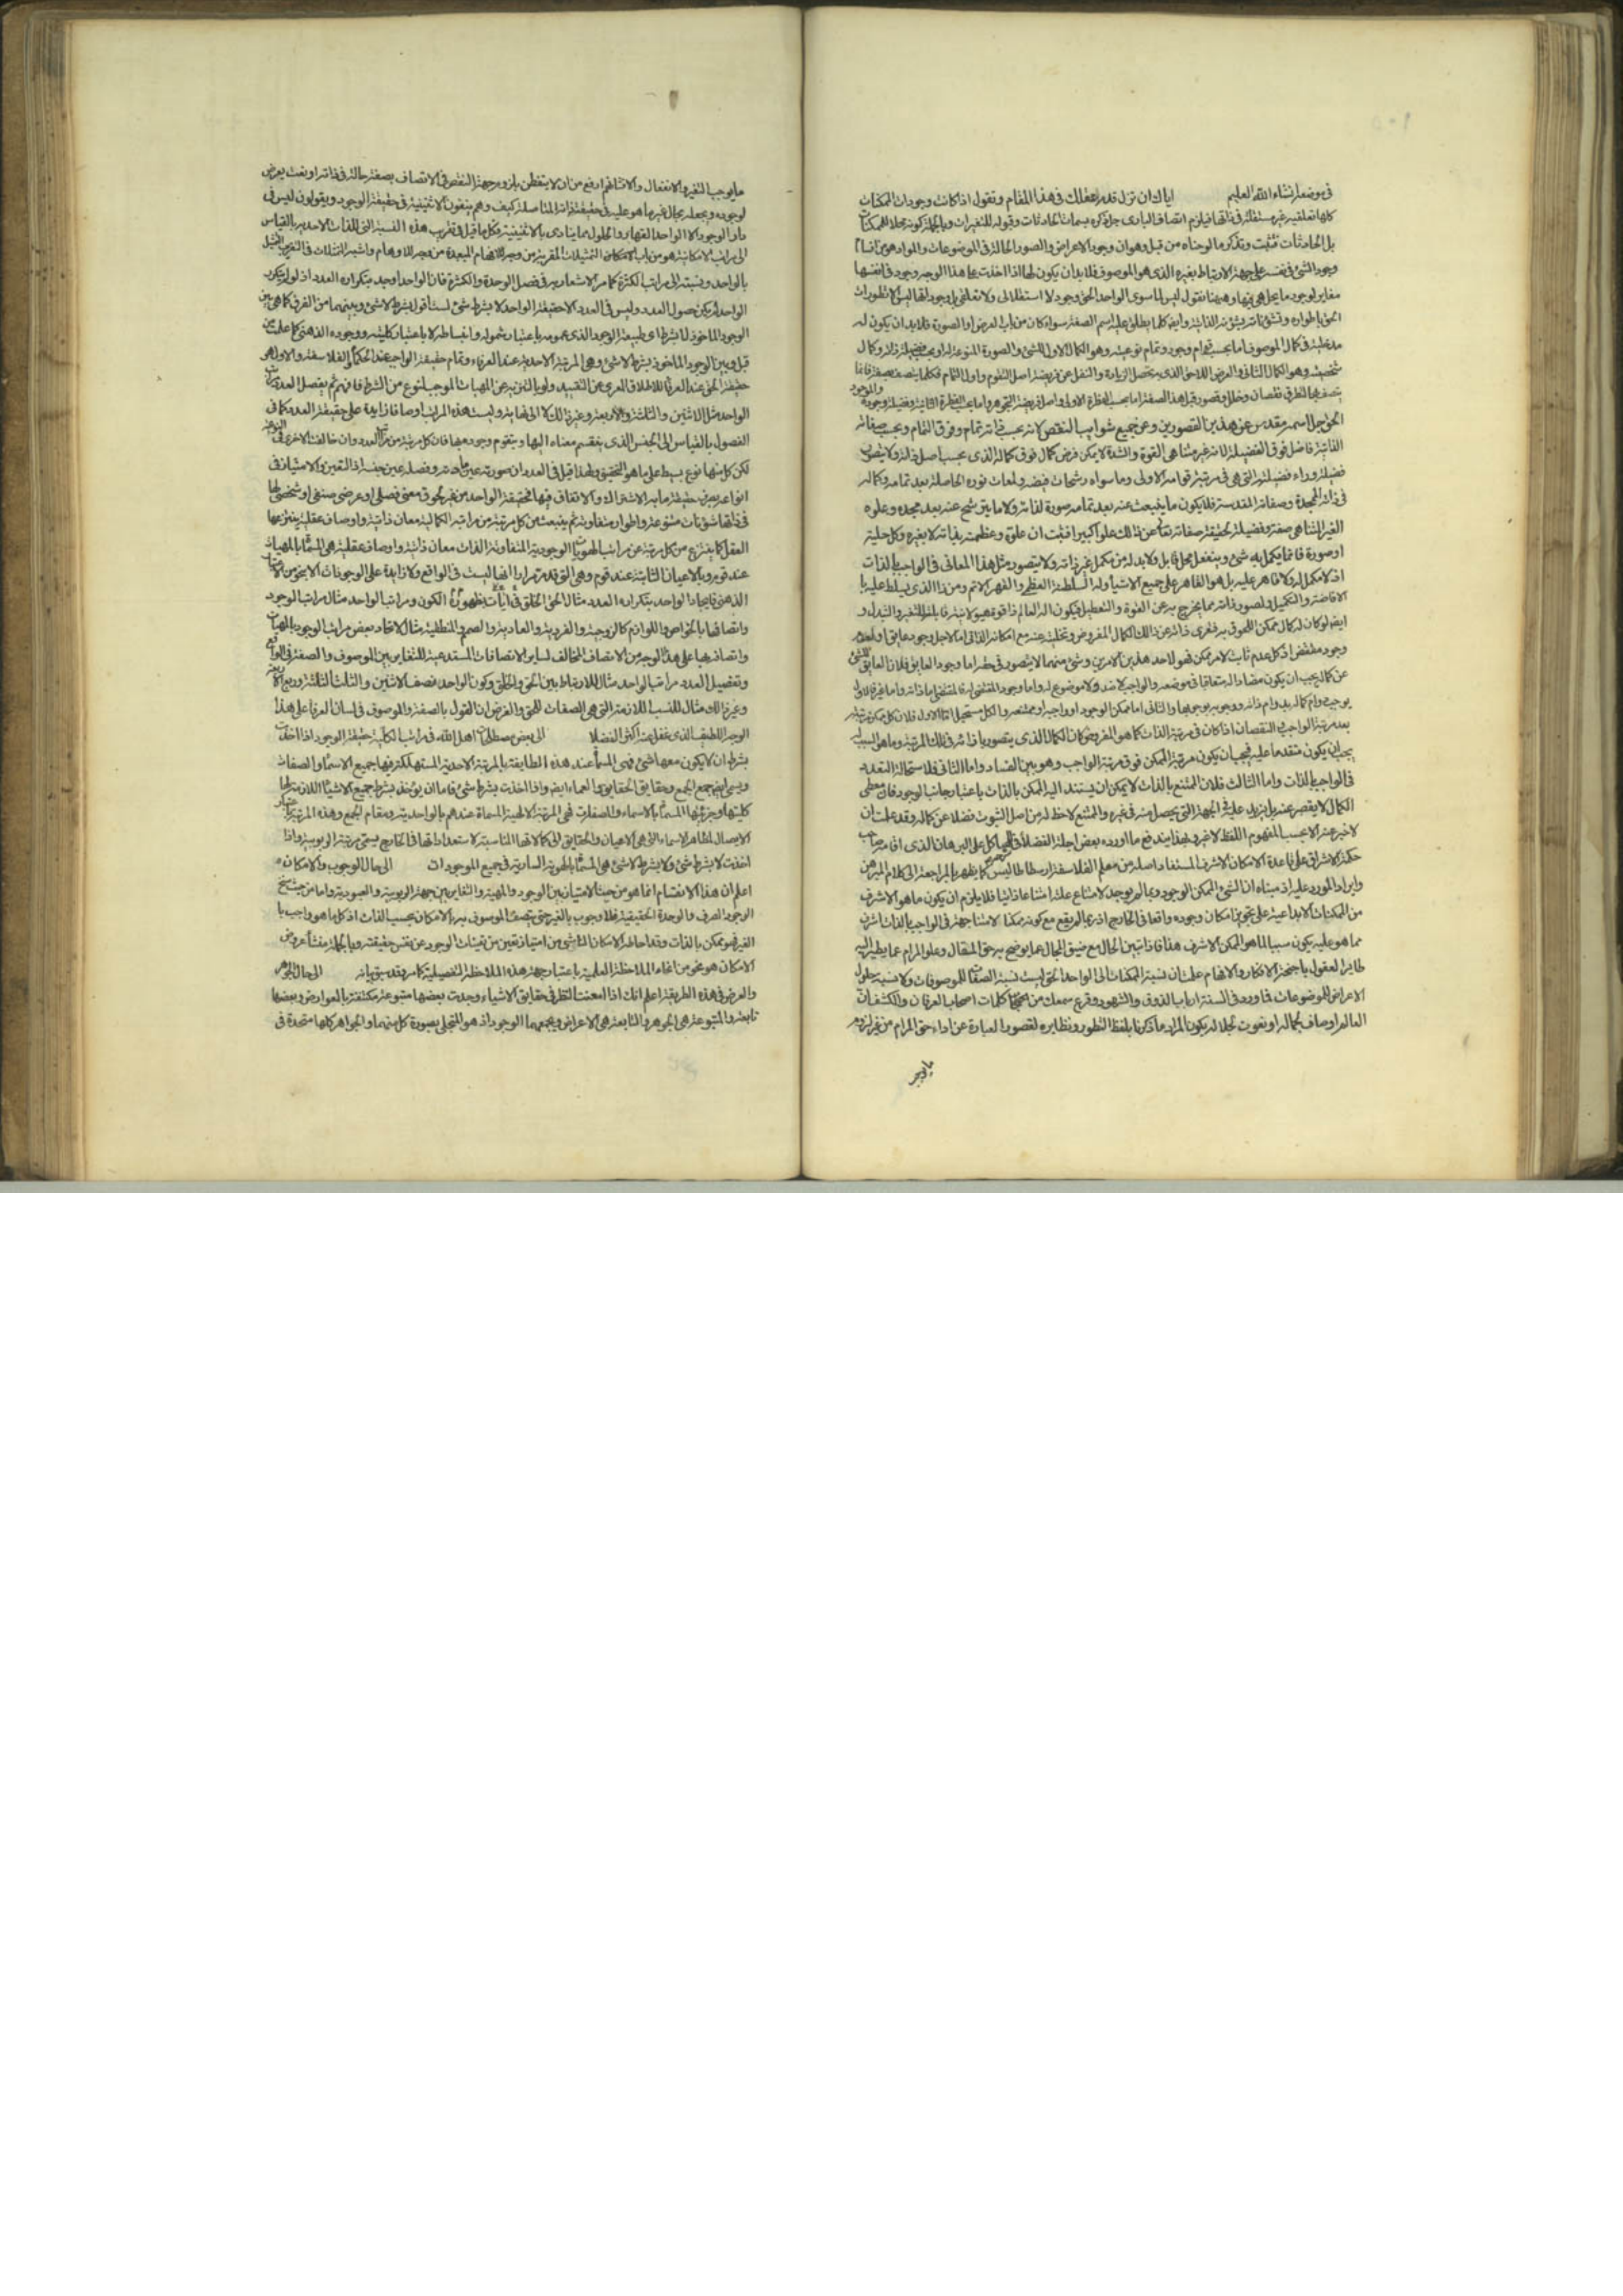 في موضعه انشاء الله العليم اياك ان تزل قدم عقلك في هذا المقام وتقول اذا كانت وجودات الممكنات
كلها تعلقية غير مستقلة في ذاتها فيلزم اتصاف الباري جل ذكره بسمات الحادثات وقبوله للتغيرات وبالجملة كونه محلا للممكنات
بل الحادثات فتثبت وتذكر ما لوحناه من قبل وهو ان وجود الاعراض والصور الحالة في الموضوعات والمواد هو من اقسام
وجود الشئ في نفسه على جهة الارتباط بغيره الذي هو الموصوف فلا بد ان يكون لها اذا اخذت على هذا الوجه وجود في انفسها
مغاير لوجود ما يحل هي فيها وهيهنا نقول ليس لما سوى الواحد الحق وجود لا استقلالي ولا تعلقي بل وجوداتها ليس الا تطورات
الحق باطواره وتشؤناته بشؤنه الذاتية وايضا كلما يطلق عليه اسم الصفة سواء كان من باب العرض او الصورة فلا بد ان يكون له
مدخلية في كمال الموصوف اما بحسب قوام وجوده وتمام نوعيته وهو الكمال الاول للشئ والصورة المنوعة له او بحسب فضيلة ذاته وكمال
شخصيته وهو الكمال الثاني والعرض اللاحق الذي به يحصل الزيادة والنفل عن فريضة اصل التقوم واول التمام فكلما يتصف بصفة فانما
يتصف بها لتطرق نقصان وخلل وقصور قبل هذه الصفة اما بحسب الفطرة الاولى واصل فريضة التجوهر واما بحسب الفطرة الثانية وفضيلة وجوده والوجود
الحق جل اسمه مقدس عن هذين القصورين وعن جميع شوايب النقص لانه بحسب ذاته تمام وفوق التمام وبحسب صفاته
الذاتية فاضل وفوق الفضيلة لانه غير متناهي القوة والشدة لا يمكن فرض كمال فوق كماله الذي بحسب اصل ذاته ولا يتصور
فضيلة وراء فضيلته التي هي في مرتبة قوامه الاولى وما سواه رشحات فيضه ولمعات نوره الحاصلة بعد تمامه وكماله
في ذاته المجيدة وصفاته المقدسة فلا يكون ما ينبعث عنه بعد تمامه صورة لذاته ولا ما يترشح عنه بعد مجده وعلوه
الغير المتناهي صفة وفضيلة لحقيقة صفاته تعالى عن ذلك علوا كبيرا فثبت ان علوه وعظمته بذاته لا بغيره وكل حلية
او صورة فانما يكمل به شئ وينفعل محل قابل ولا بد له من مكمل غير ذاته ولا يتصور مثل هذا المعاني في الواجب بالذات
اذ لا مكمل له ولا قاهر عليه بل هو القاهر على جميع الاشياء وله السلطنة العظمى والقهر الاتم ومن ذا الذي يسلط عليه با
لافاضة والتكميل ولصور ذاته بما يخرج به عن القوة والتعطيل فيكون اله العالم ذا قوة هيولانية قابلة للتغير والتبدل و
ايضا لو كان له كمال ممكن اللحوق به فتعرى ذاته عن ذلك الكمال المفروض وتخليته عنه مع امكانه الذاتي اما لاجل وجود عايق او لعدم
وجود مقتض اذ كل عدم ثابت لامر ممكن فهو لاحد هذين الامرين وشئ منهما لا يتصور في حقه اما وجود العايق فلان العايق للشئ
عن كماله يجب ان يكون مضادا له متعاقبا في موضعه والواجب لا ضد ولا موضوع له واما وجود المقتضي له فالمقتضي اما ذاته واما غيره فالاول
يوجب دوام كماله بدوام ذاته ووجوبه بوجوبها والثاني اما ممكن الوجود او واجبه او ممتنعه والكل مستحيل اما الاول فلان كل ممكن مرتبته
بعد مرتبة الواجب والنقصان اذا كان في مرتبة الذات كما هو المفروض كان الكمال الذي يتصور بازائه في تلك المرتبة وما هو السبب له
يجب ان يكون متقدما عليه فيجب ان يكون مرتبة الممكن فوق مرتبة الواجب وهو بين الفساد واما الثاني فلاستحالة التعدد
في الواجب بالذات واما الثالث فلان الممتنع بالذات لا يمكن ان يستند اليه الممكن بالذات باعتبار جانب الوجود فان معطي
الكمال لا يقصر عنه بل يزيد عليه في الجهة التي يحصل منه في غيره والممتنع لا حظ له من اصل الثبوت فضلا عن كماله وقد علمت ان
لا خبر عنه الا بحسب المفهوم اللفظ لا غير وبهذا يندفع ما اورده بعض اجلة الفضلاء في شرحه لهياكل على البرهان الذي اقامه صاحب
حكمة الاشراق على قاعدة الامكان الاشرف المستفاد اصله من معلم الفلاسفة ارسطاطاليس كما يظهر بالمراجعة الى كلام المبرهن
وايراد المورد عليه اذ مبناه ان الشئ الممكن الوجود ربما لم يوجد لامتناع علته امتناعا ذاتيا فلا يلزم ان يكون ما هو الاشرف
من الممكنات الابداعية على تجويز امكان وجوده واقعا في الخارج اذ ربما لم يقع مع كونه ممكنا لامتناع جهة في الواجب بالذات اشرف
مما هو عليه يكون سببا لما هو الممكن الاشرف هذا فاذا تبين الحال مع ضيق المجال عما يوضح به حق المقال وعلو المرام عما يطير اليه
طائر العقول باجنحة الافكار والافهام علمت ان نسبة الممكنات الى الواحد الحق ليست نسبة الصفات للموصوفات ولا نسبة حلول
الاعراض للموضوعات فما ورد في السنة ارباب الذوق والشهود وقرع سمعك من كلمات اصحاب العرفان والكشف ان
العالم اوصاف لجماله او نعوت لجلاله يكون المراد ما ذكرنا بلفظ التطور ونظايره لقصور العبارة عن اداء حق المرام من غير لزوم
ما يوجب
ما يوجب التغير والانفعال والا فشانهم ارفع من ان لا يتفطن بلزوم جهة النقص في الاتصاف بصفة حالة في ذاته او نعت يعرض
لوجوده ويجعله بحال غير ما هو عليه في حقيقة ذاته المتاصلة كيف وهم ينفون الاثنينية في حقيقة الوجود ويقولون ليس في
دار الوجود الا الواحد القهار والحلول مما ينادي بالاثنينية فكل ما قيل في تقريب هذه النسبة التي للذات الاحدية بالقياس
الى مراتب الامكانية هو من باب التمثيلات المقربة من وجه للافهام المبعدة من وجه للاوهام واشبه التمثلات في التقريب التمثيل
بالواحد ونسبته الى مراتب الكثرة كما مر الاشعار به في فصل الوحدة والكثرة فان الواحد اوجد بتكراره العدد اذ لو لم يتكرر
الواحد لم يكن حصول العدد وليس في العدد الا حقيقة الواحد لا بشرط شئ لست اقول بشرط لا شئ وبينهما من الفرق كما هي بين
الوجود الماخوذ لا بشرط اي طبيعة الوجود الذي عمومه باعتبار شموله وانبساطه لا باعتبار كليته ووجوده الذهني كما علمت من
قبل وبين الوجود الماخوذ بشرط لا شئ وهي المرتبة الاحدية عند العرفاء وتمام حقيقة الواجب عند الحكماء الفلاسفة والاول هو
حقيقة الحق عند العرفاء للاطلاق العري عن التقييد ولو بالتنزيه عن المهيات الموجب لنوع من الشرط فافهم ثم يفصل العدد مراتب
الواحد مثل الاثنين والثلثة والاربعة وغير ذلك الى لا نهاية وليست هذه المراتب اوصافا زايدة على حقيقة العدد كما في
الفصول بالقياس الى الجنس الذي ينقسم معناه اليها ويتقوم وجوده بها فان كل مرتبة من مراتب العدد وان خالفت الاخرى في النوعية
لكن كل منها نوع بسيط على ما هو التحقيق ولهذا قيل في العدد ان صورته عين مادته وفصله عين جنسه اذ التعين والامتياز في
انواعه بصرف حقيقة ما به الاشتراك والاتفاق فيها فحقيقة الواحد من غير لحوق معنى فصلي او عرضي صنفي او شخصي لها
في ذاتها شؤونات متنوعة واطوار متفاوتة ثم ينبعث من كل مرتبة من مراتبه الكمالية معان ذاتية واوصاف عقلية ينتزعها
العقل كما ينتزع من كل مرتبة من مراتب الهويات الوجودية المتفاوتة الذات معان ذاتية واوصاف عقلية هي المسماة بالمهيات
عند قوم وبالاعيان الثابتة عند قوم وهي التي قد مر مرارا انها ليست في الواقع ولا زايدة على الوجودات الا بنحو من الاعتبار
الذهني فايجاد الواحد بتكراره العدد مثال لايجاد الحق الخلق بظهوره في ايات الكون ومراتب الواحد مثال مراتب الوجود
واتصافها بالخواص واللوازم كالزوجية والفردية والعادية والصمم والمنطقية مثال لاتحاد بعض مراتب الوجود بالمهيات
واتصافه بها على هذا الوجه من الاتصاف المخالف لساير الاتصافات المستدعية للتغاير بين الموصوف والصفة في الواقع
وتفصيل العدد مراتب الواحد مثال للارتباط بين الحق والخلق وكون الواحد نصف الاثنين والثلث الثلثة وربع الاربعة
وغير ذلك مثال للنسب اللازمة التي هي الصفات للحق والغرض ان القول بالصفة والموصوف في لسان العرفاء على هذا
الوجه اللطيف الذي غفل عنه اكثر الفضلاء الى بعض مصطلحات اهل الله في مراتب الكلية حقيقة الوجود اذا اخذت
بشرط ان لا يكون معها شئ فهي المسماة عند هذه الطايفة بالمرتبة الاحدية المستهلكة فيها جميع الاسماء والصفات
ويسمى ايضا جمع الجمع وحقايق الحقايق والعماء ايضا واذا اخذت بشرط شئ فاما ان يؤخذ بشرط جميع الاشياء اللازمة لها
كليتها وجزئيتها المسماة بالاسماء والصفات فهي المرتبة الالهية المسماة عندهم بالواحدية ومقام الجمع وهذه المرتبة باعتبار
الايصال لمظاهر الاسماء التي هي الاعيان والحقايق الى كمالاتها المناسبة لاستعداداتها في الخارج يسمى مرتبة الربوبية واذا
اخذت لا بشرط شئ ولا بشرط لا شئ فهي المسماة بالهوية السارية في جميع الموجودات الى حال الوجوب والامكان
اعلم ان هذا الانقسام انما هو من حيث الامتياز بين الوجود والمهية والتغاير بين جهة الربوبية والعبودية واما من حيث سنخ
الوجود الصرف والوحدة الحقيقية فلا وجوب بالغير حتى يتصف الموصوف به بالامكان بحسب الذات اذ كل ما هو واجب با
لغير فهو ممكن بالذات وقد احاطه الامكان الناشئ من امتياز تعين من تعينات الوجود عن نفس حقيقته وبالجملة منشأ عروض
الامكان هو نحو من انحاء الملاحظة العلمية باعتبار جهة هذه الملاحظة التفصيلية كما مر وقد سبق بيانه الى حال الجوهر
والعرض في هذه الطريقة اعلم انك اذا امعنت النظر في حقايق الاشياء وجدت بعضها متبوعة مكتنفة بالعوارض وبعضها
تابعة والمتبوعة هي الجوهر والتابعة هي الاعراض ويجمعهما الوجود اذ هو المتجلي بصورة كل منهما والجواهر كلها متحدة في